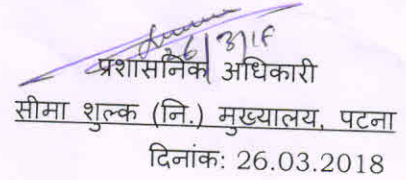 26/3/18
प्रशासनिक अधिकारी
सीमा शुल्क (नि.) मुख्यालय, पटना
दिनांक: 26.03.2018